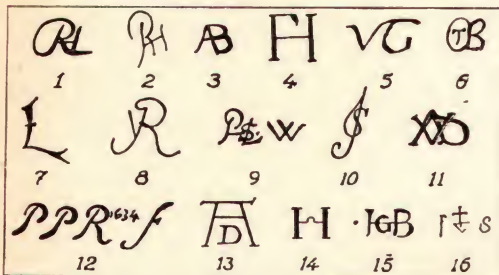 RL RH AB FH VG TB
1 2 3 4 5 6
L JR PSL W JS XVD
7 8 9 10 11
PPR 1634 f AD H · HGB S
12 13 14 15 16